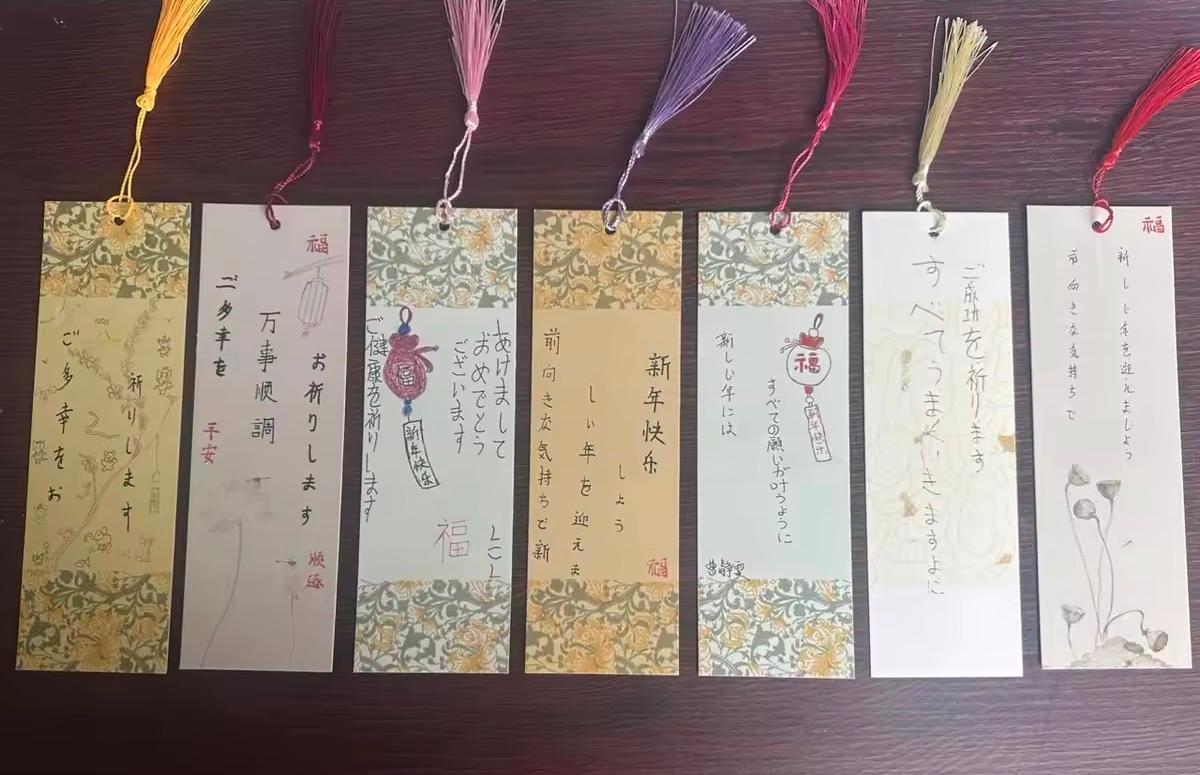 ご多幸をお
祈りします
福
ご多幸を
お祈りします
万事順調
平安
順遂
あけまして
おめでとう
ございます
福
新年快乐
ご健康を祈りします
福
新年快乐
前向きな気持ちで新
しい年を迎えま
しょう
福
福
新年快乐
新しい年には
すべての願いが叶うように
ご成功を祈ります
すべてうまくいきますよに
福
前向きな気持ちで
新しい年を迎えましよう